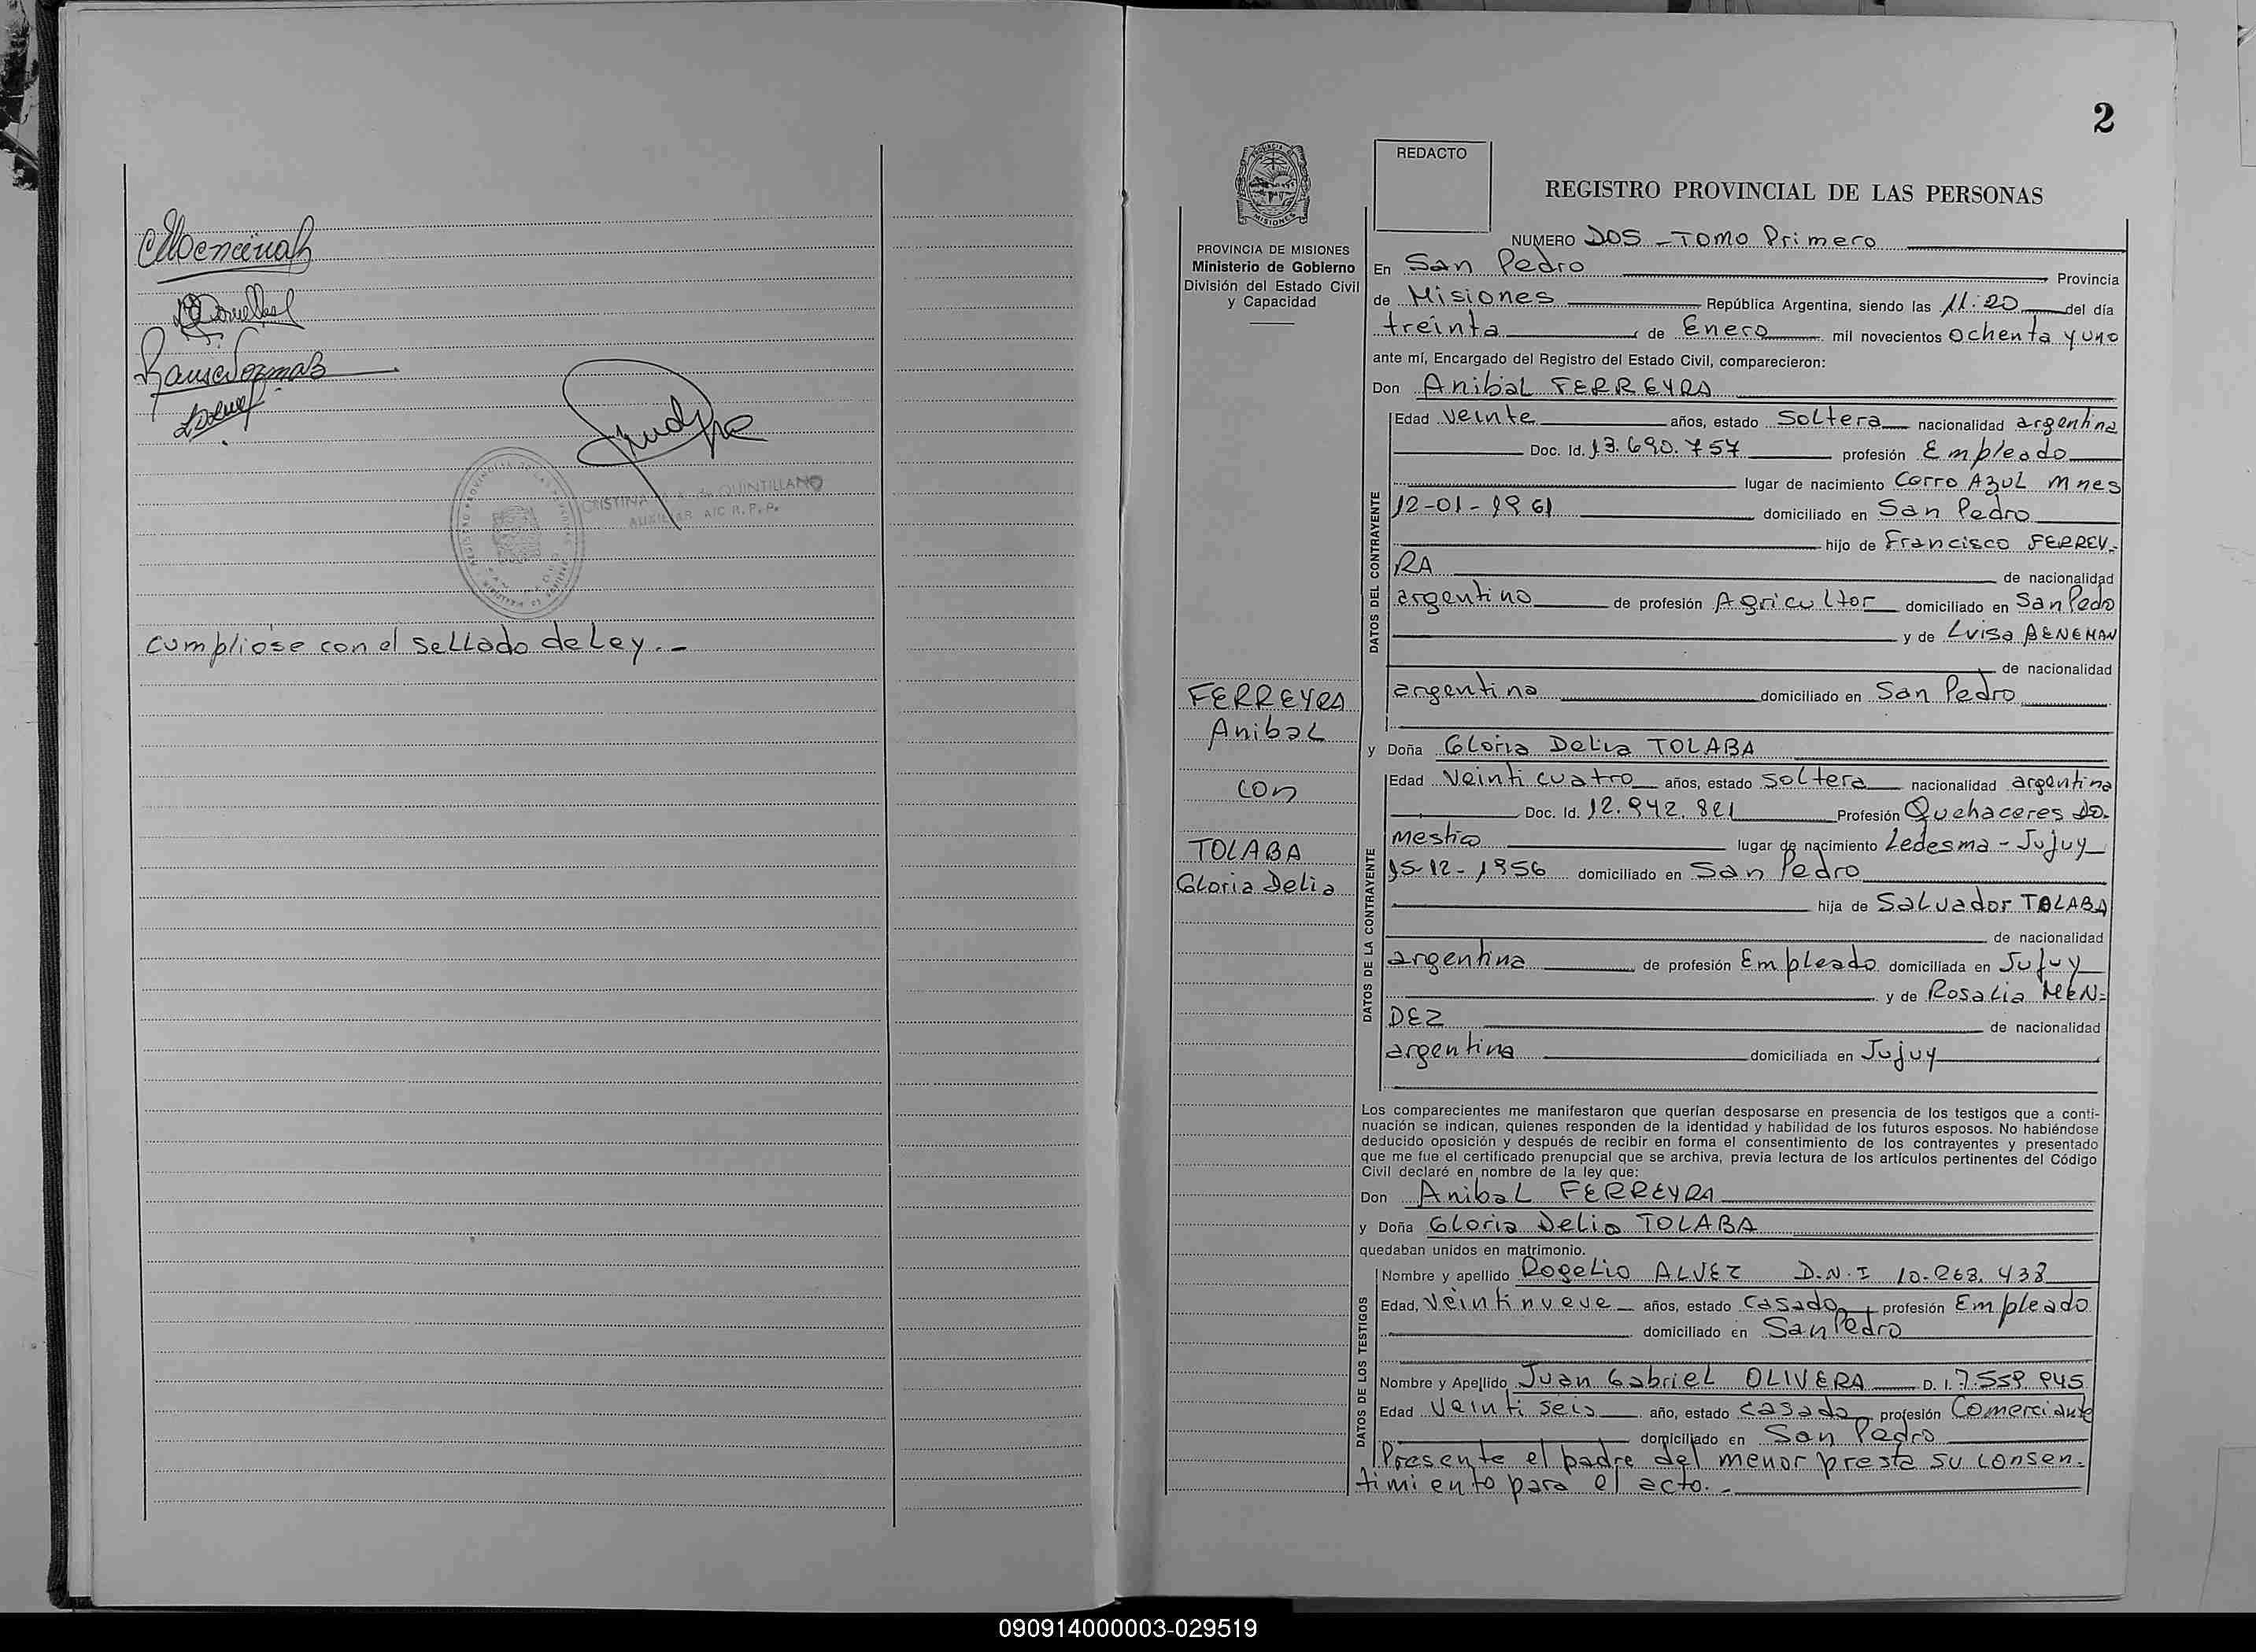 cumpliose con el sellado de Ley.-
CRISTINA de QUINTILLANO
AUXILIAR A/C R.P.P.
2
REDACTO
REGISTRO PROVINCIAL DE LAS PERSONAS
MISIONES
PROVINCIA DE MISIONES
Ministerio de Gobierno
División del Estado Civil
y Capacidad
FERREYRA
Anibal
con
TOLABA
Gloria Delia
NUMERO DOS - TOMO Primero
En San Pedro Provincia
de Misiones República Argentina, siendo las 11:20 del día
treinta de Enero mil novecientos ochenta y uno
ante mí, Encargado del Registro del Estado Civil, comparecieron:
Don Anibal FERREYRA
DATOS DEL CONTRAYENTE
Edad veinte años, estado Soltera nacionalidad argentina
Doc. Id. 13.690.757 profesión Empleado
lugar de nacimiento Cerro Azul Mnes
12-01-1961 domiciliado en San Pedro
hijo de Francisco FERREY-
RA de nacionalidad
argentino de profesión Agricultor domiciliado en San Pedro
y de Luisa BENEMAN
de nacionalidad
argentina domiciliado en San Pedro
y Doña Gloria Delia TOLABA
DATOS DE LA CONTRAYENTE
Edad Veinti cuatro años, estado Soltera nacionalidad argentina
Doc. Id. 12.942.821 Profesión Quehaceres Do-
mestico lugar de nacimiento Ledesma - Jujuy
15-12-1956 domiciliado en San Pedro
hija de Salvador TOLABA
de nacionalidad
argentina de profesión Empleado domiciliada en Jujuy
y de Rosalia MEN-
DEZ de nacionalidad
argentina domiciliada en Jujuy
Los comparecientes me manifestaron que querían desposarse en presencia de los testigos que a conti-
nuación se indican, quienes responden de la identidad y habilidad de los futuros esposos. No habiéndose
deducido oposición y después de recibir en forma el consentimiento de los contrayentes y presentado
que me fue el certificado prenupcial que se archiva, previa lectura de los artículos pertinentes del Código
Civil declaré en nombre de la ley que:
Don Anibal FERREYRA
y Doña Gloria Delia TOLABA
quedaban unidos en matrimonio.
DATOS DE LOS TESTIGOS
Nombre y apellido Rogelio ALVEZ D.N.I 10.268.438
Edad, Veintinueve años, estado Casado profesión Empleado
domiciliado en San Pedro
Nombre y Apellido Juan Gabriel OLIVERA D. I. 7.559.945
Edad Veinti seis año, estado casado profesión Comerciante
domiciliado en San Pedro
Presente el padre del menor presta su consen-
timiento para el acto.-
090914000003-029519